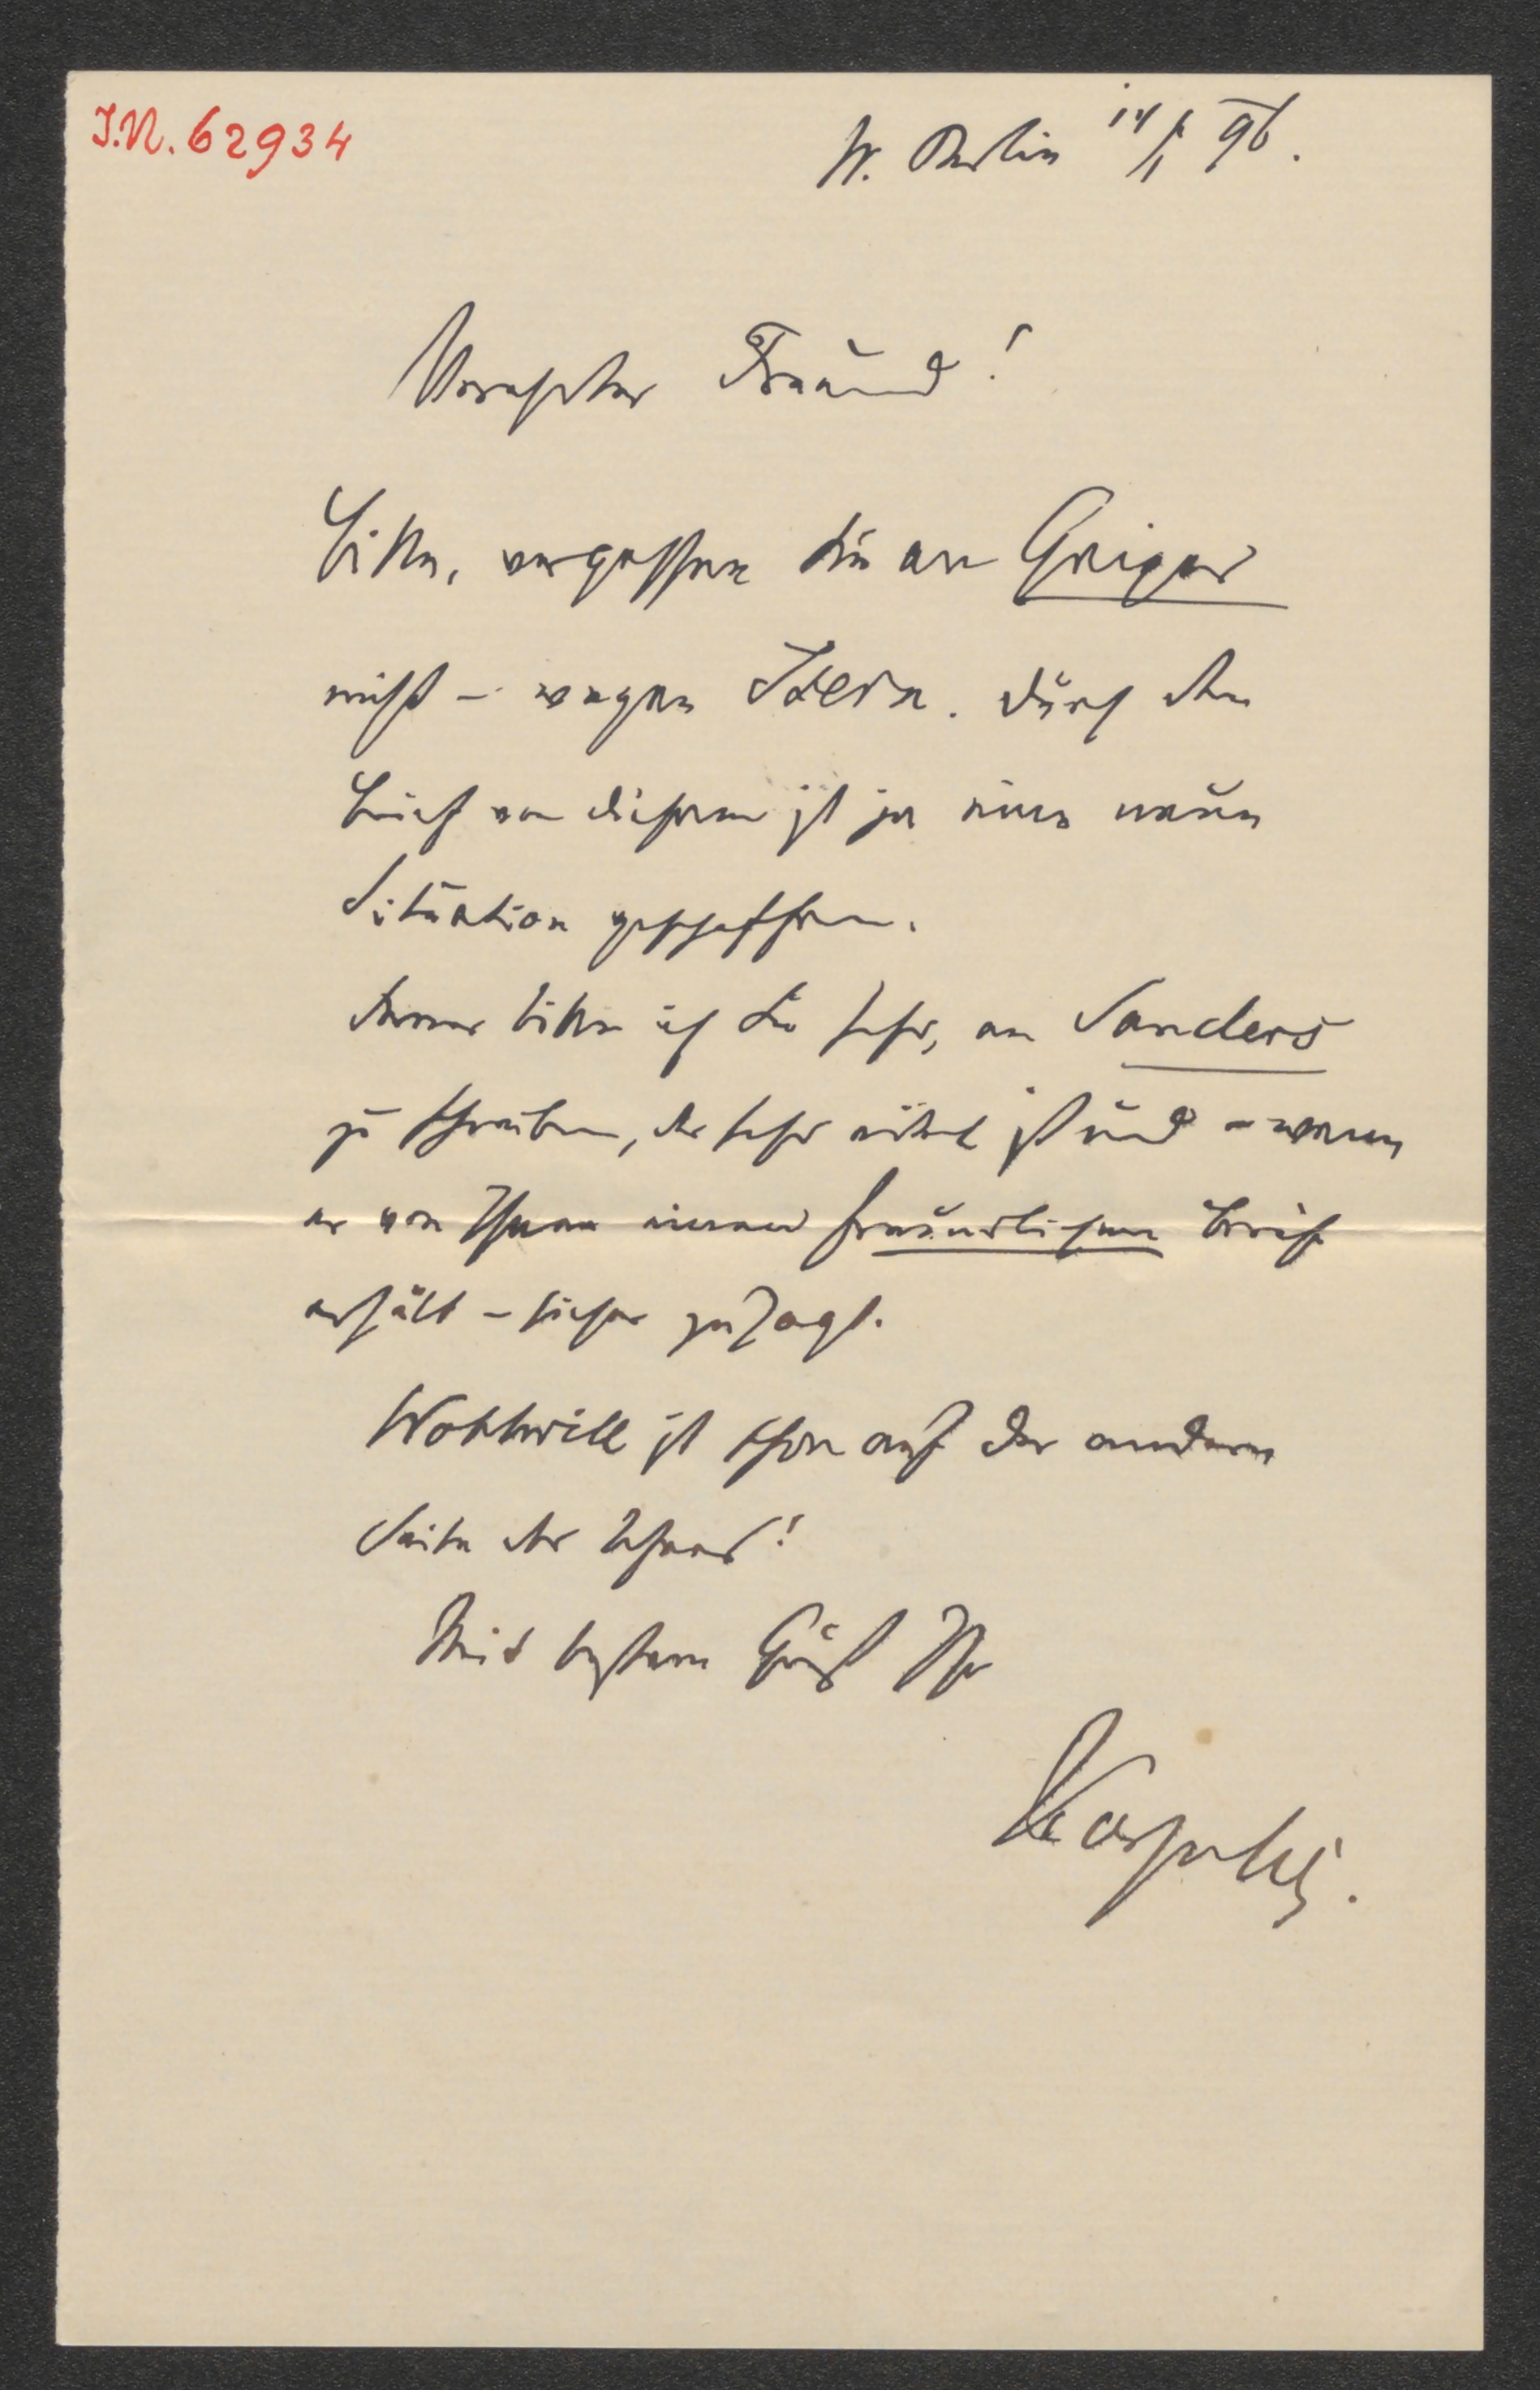 I.N. 62934
W. Berlin 14/I 96.
Verehrter Freund!
bitte, vergessen Sie an Geiger
nicht – wegen Stern. Durch den
Brief von diesem ist ja eine neue
Situation geschaffen.
Ferner bitte ich Sie sehr, an Sanders
zu schreiben, der sehr eitel ist und – wenn
er von Ihnen einen freundlichen Brief
erhält – sicher zusagt.
Wohlwill ist schon auf der andern
Seite der
Mit bestem Gruß Ihr
Karpeles.